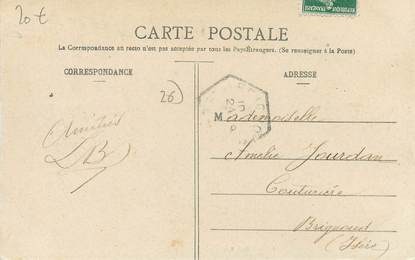 20 €
CARTE POSTALE
La Correspondance au recto n'est pas acceptée par tous les Pays Étrangers. (Se renseigner à la Poste)
CORRESPONDANCE
ADRESSE
26)
Amitiés
LB
Mademoiselle
Amélie Jourdan
Couturière
Brignoud
(Isère)